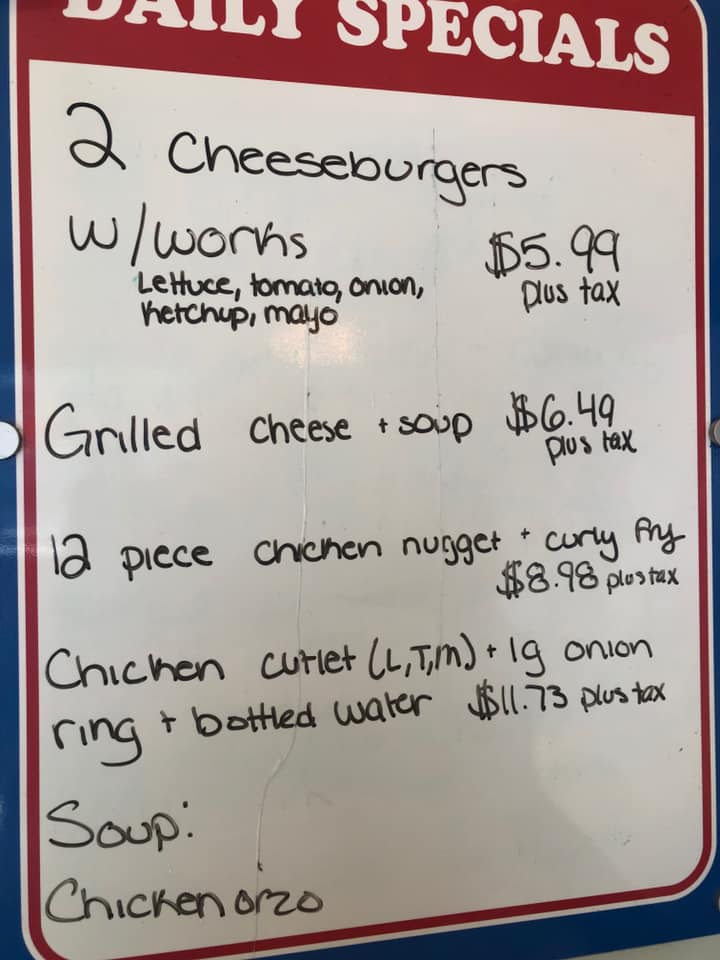 DAILY SPECIALS
2 Cheeseburgers
w/works $5.99
Lettuce, tomato, onion, plus tax
ketchup, mayo
Grilled cheese + soup $6.49
plus tax
12 piece chicken nugget + curly fry
$8.98 plus tax
Chicken cutlet (L,T,M) + lg onion
ring + bottled water $11.73 plus tax
Soup:
Chicken orzo